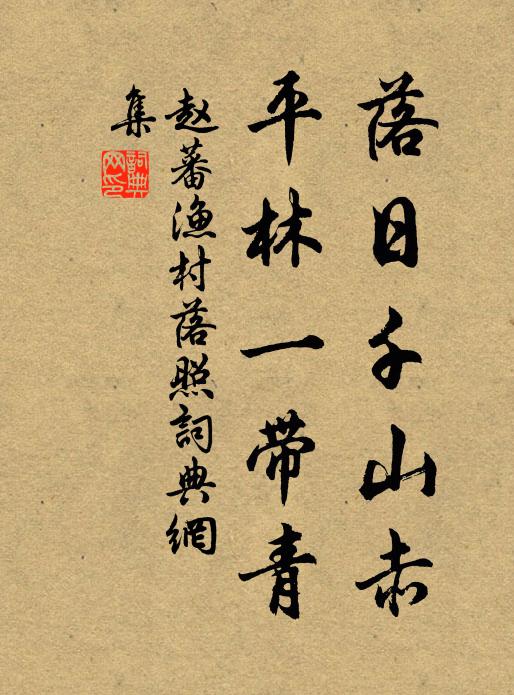 落日千山赤
平林一带青
赵蕃渔村落照詞典網
集
詞典
网印